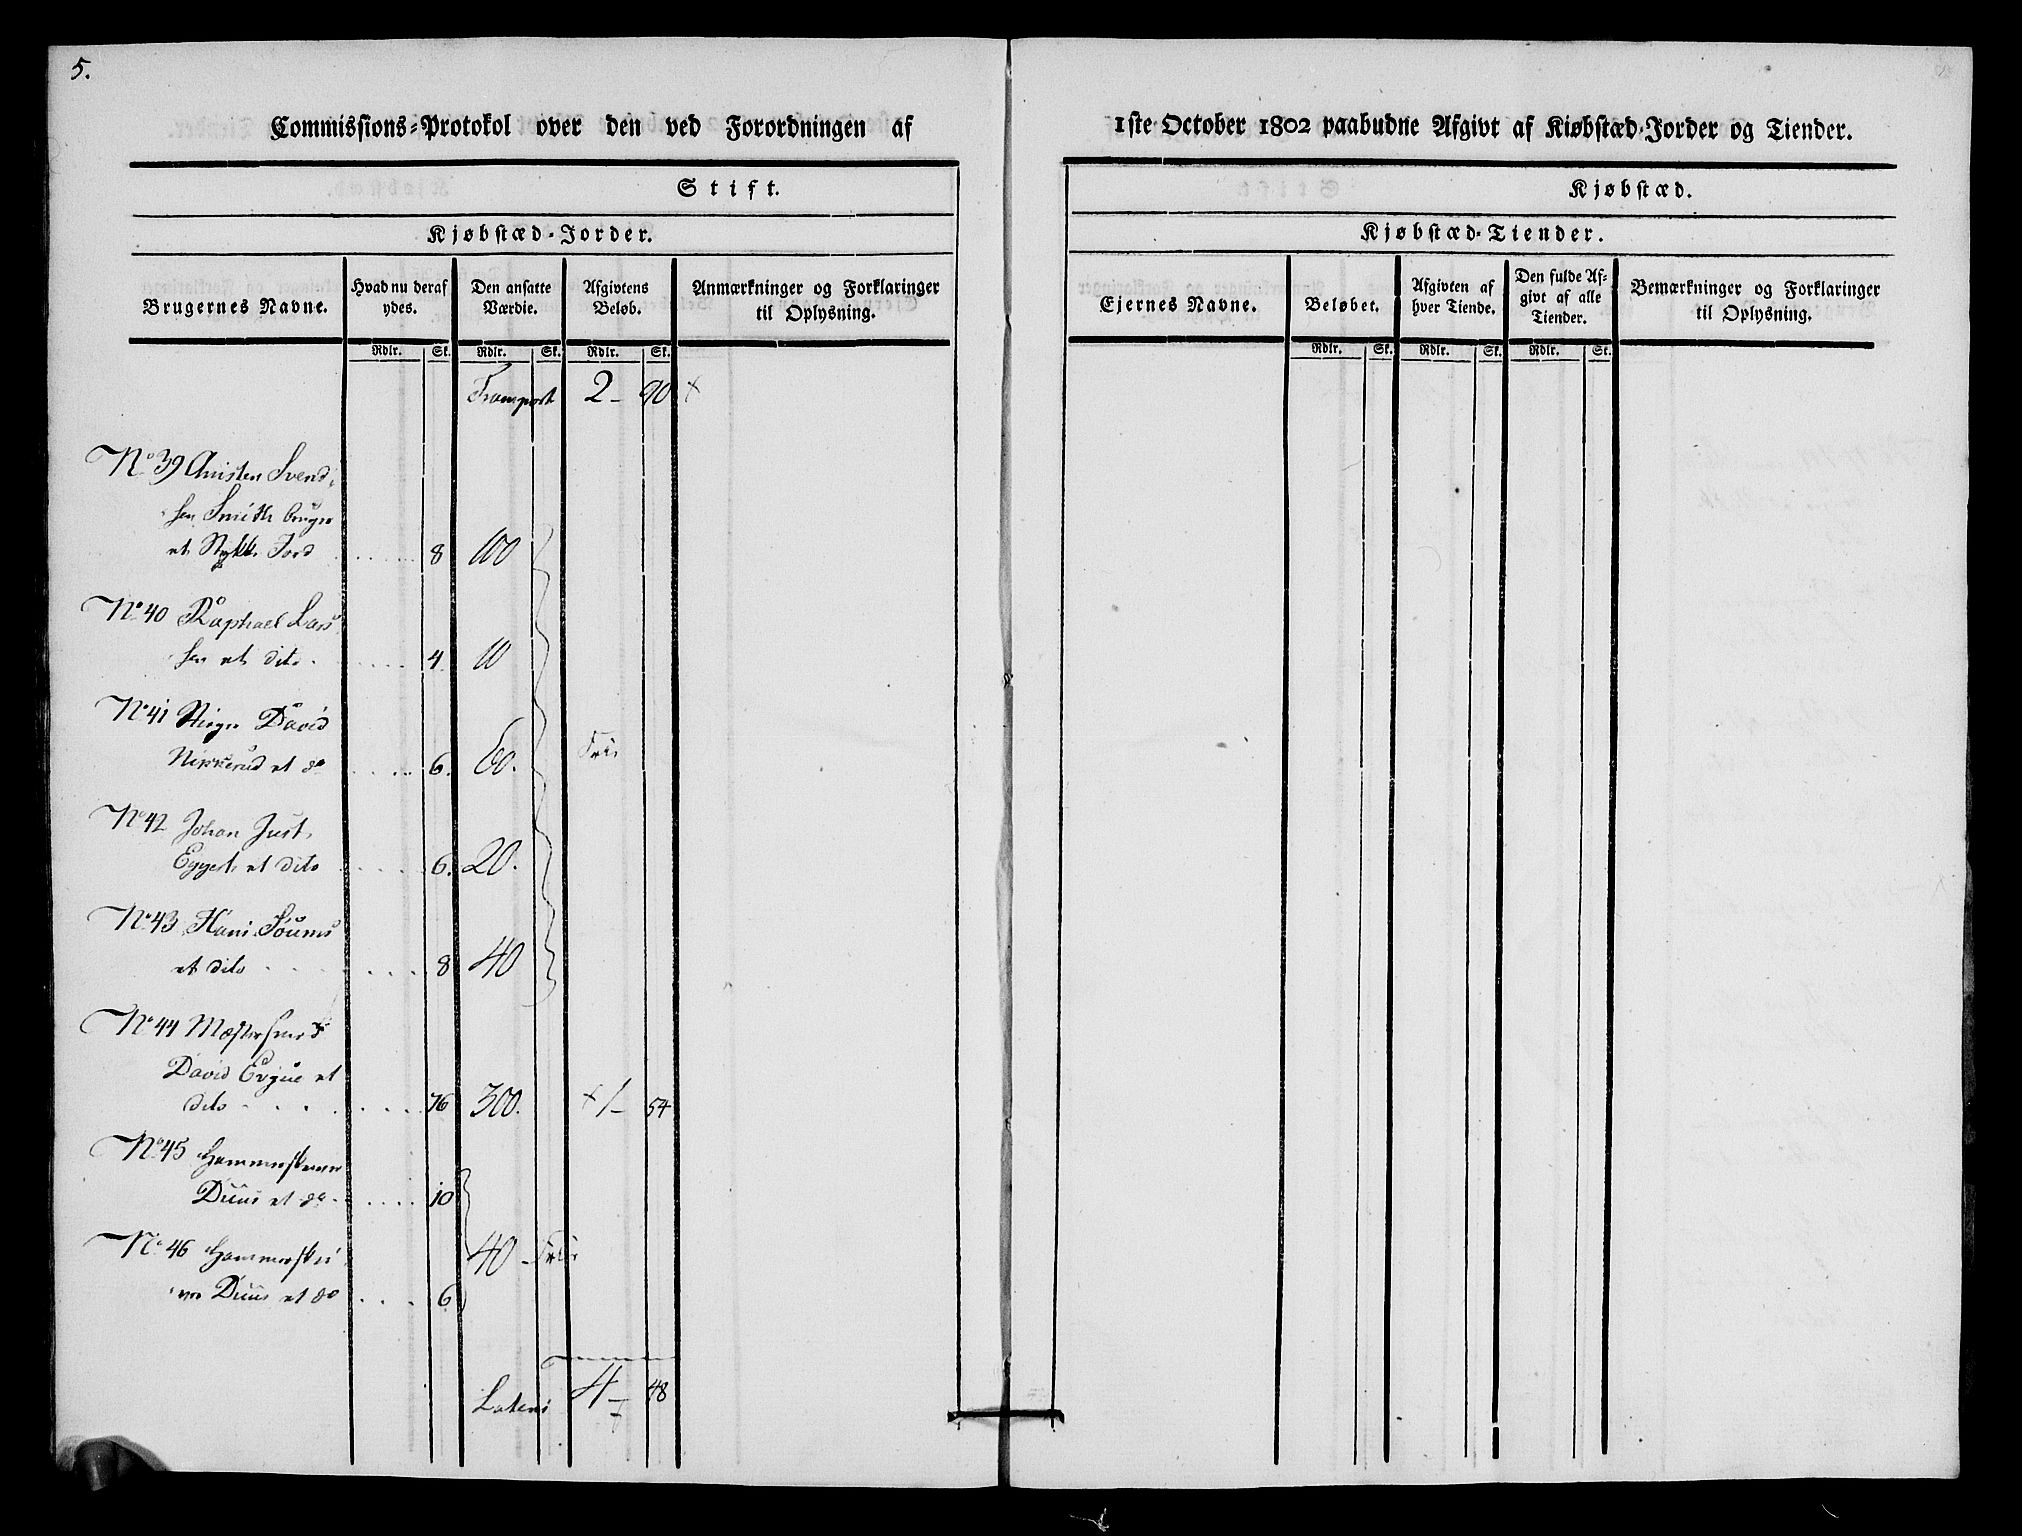 5.
Commissions-Protokol over den ved Forordningen af 1ste October 1802 paabudne Afgivt af Kiøbstæd-Jorder og Tiender.
Stift. Kjøbstæd.
Kjøbstæd-Jorder. Kjøbstæd-Tiender.
Brugernes Navne. Hvad nu deraf ydes. Den ansatte Værdie. Afgivtens Beløb. Anmærkninger og Forklaringer til Oplysning.
Ejernes Navne. Beløbet. Afgivten af hver Tiende. Den fulde Afgivt af alle Tiender. Bemærkninger og Forklaringer til Oplysning.
Rdlr. Sk. Rdlr. Sk. Rdlr. Sk. Rdlr. Sk. Rdlr. Sk. Rdlr. Sk.
Transport 2 - 90
No 39 Anisten Svend-
sen Smith bruger
et Stykke Jord 8 100
No 40 Raphael Lars
sen et dito 4. 10
No 41 David
Nikkerud et do 6. 60. Frie
No 42 Johan Just
Eggert et dito 6. 20.
No 43 Hans
et dito 8 40
No 44
David Evjue et
dito 76 300. 1 - 54
No 45 Hammerskriver
Duus et do 10
No 46 Hammerskri
ver Duus et do 6 40 - Frie
Lateris 4 - 48